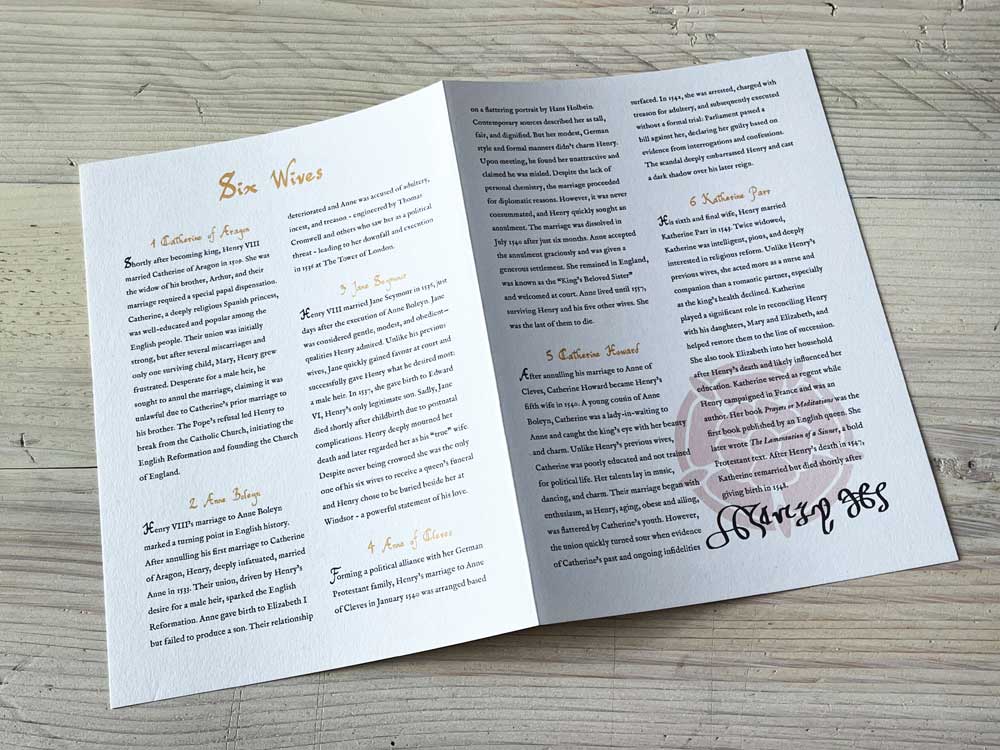 Six Wives
1 Catherine of Aragon
Shortly after becoming king, Henry VIII
married Catherine of Aragon in 1509. She was
the widow of his brother, Arthur, and their
marriage required a special papal dispensation.
Catherine, a deeply religious Spanish princess,
was well-educated and popular among the
English people. Their union was initially
strong, but after several miscarriages and
only one surviving child, Mary, Henry grew
frustrated. Desperate for a male heir, he
sought to annul the marriage, claiming it was
unlawful due to Catherine's prior marriage to
his brother. The Pope's refusal led Henry to
break from the Catholic Church, initiating the
English Reformation and founding the Church
of England.
2 Anne Boleyn
Henry VIII's marriage to Anne Boleyn
marked a turning point in English history.
After annulling his first marriage to Catherine
of Aragon, Henry, deeply infatuated, married
Anne in 1533. Their union, driven by Henry's
desire for a male heir, sparked the English
Reformation. Anne gave birth to Elizabeth I
but failed to produce a son. Their relationship
deteriorated and Anne was accused of adultery,
incest, and treason - engineered by Thomas
Cromwell and others who saw her as a political
threat - leading to her downfall and execution
in 1535 at The Tower of London.
3 Jane Seymour
Henry VIII married Jane Seymour in 1536, just
days after the execution of Anne Boleyn. Jane
was considered gentle, modest, and obedient—
qualities Henry admired. Unlike his previous
wives, Jane quickly gained favour at court and
successfully gave Henry what he desired most:
a male heir. In 1537, she gave birth to Edward
VI, Henry's only legitimate son. Sadly, Jane
died shortly after childbirth due to postnatal
complications. Henry deeply mourned her
death and later regarded her as his “true” wife.
Despite never being crowned she was the only
one of his six wives to receive a queen's funeral
and Henry chose to be buried beside her at
Windsor - a powerful statement of his love.
4 Anne of Cleves
Forming a political alliance with her German
Protestant family, Henry's marriage to Anne
of Cleves in January 1540 was arranged based
on a flattering portrait by Hans Holbein.
Contemporary sources described her as tall,
fair, and dignified. But her modest, German
style and formal manners didn't charm Henry.
Upon meeting, he found her unattractive and
claimed he was misled. Despite the lack of
personal chemistry, the marriage proceeded
for diplomatic reasons. However, it was never
consummated, and Henry quickly sought an
annulment. The marriage was dissolved in
July 1540 after just six months. Anne accepted
the annulment graciously and was given a
generous settlement. She remained in England,
was known as the “King's Beloved Sister”
and welcomed at court. Anne lived until 1557,
surviving Henry and his five other wives. She
was the last of them to die.
5 Catherine Howard
After annulling his marriage to Anne of
Cleves, Catherine Howard became Henry's
fifth wife in 1540. A young cousin of Anne
Boleyn, Catherine was a lady-in-waiting to
Anne and caught the king's eye with her beauty
and charm. Unlike Henry's previous wives,
Catherine was poorly educated and not trained
for political life. Her talents lay in music,
dancing, and charm. Their marriage began with
enthusiasm, as Henry, aging, obese and ailing,
was flattered by Catherine's youth. However,
the union quickly turned sour when evidence
of Catherine's past and ongoing infidelities
surfaced. In 1542, she was arrested, charged with
treason for adultery, and subsequently executed
without a formal trial: Parliament passed a
bill against her, declaring her guilty based on
evidence from interrogations and confessions.
The scandal deeply embarrassed Henry and cast
a dark shadow over his later reign.
6 Katherine Parr
His sixth and final wife, Henry married
Katherine Parr in 1543. Twice widowed,
Katherine was intelligent, pious, and deeply
interested in religious reform. Unlike Henry's
previous wives, she acted more as a nurse and
companion than a romantic partner, especially
as the king's health declined. Katherine
played a significant role in reconciling Henry
with his daughters, Mary and Elizabeth, and
helped restore them to the line of succession.
She also took Elizabeth into her household
after Henry's death and likely influenced her
education. Katherine served as regent while
Henry campaigned in France and was an
author. Her book Prayers or Meditations was the
first book published by an English queen. She
later wrote The Lamentation of a Sinner, a bold
Protestant text. After Henry's death in 1547,
Katherine remarried but died shortly after
giving birth in 1548.